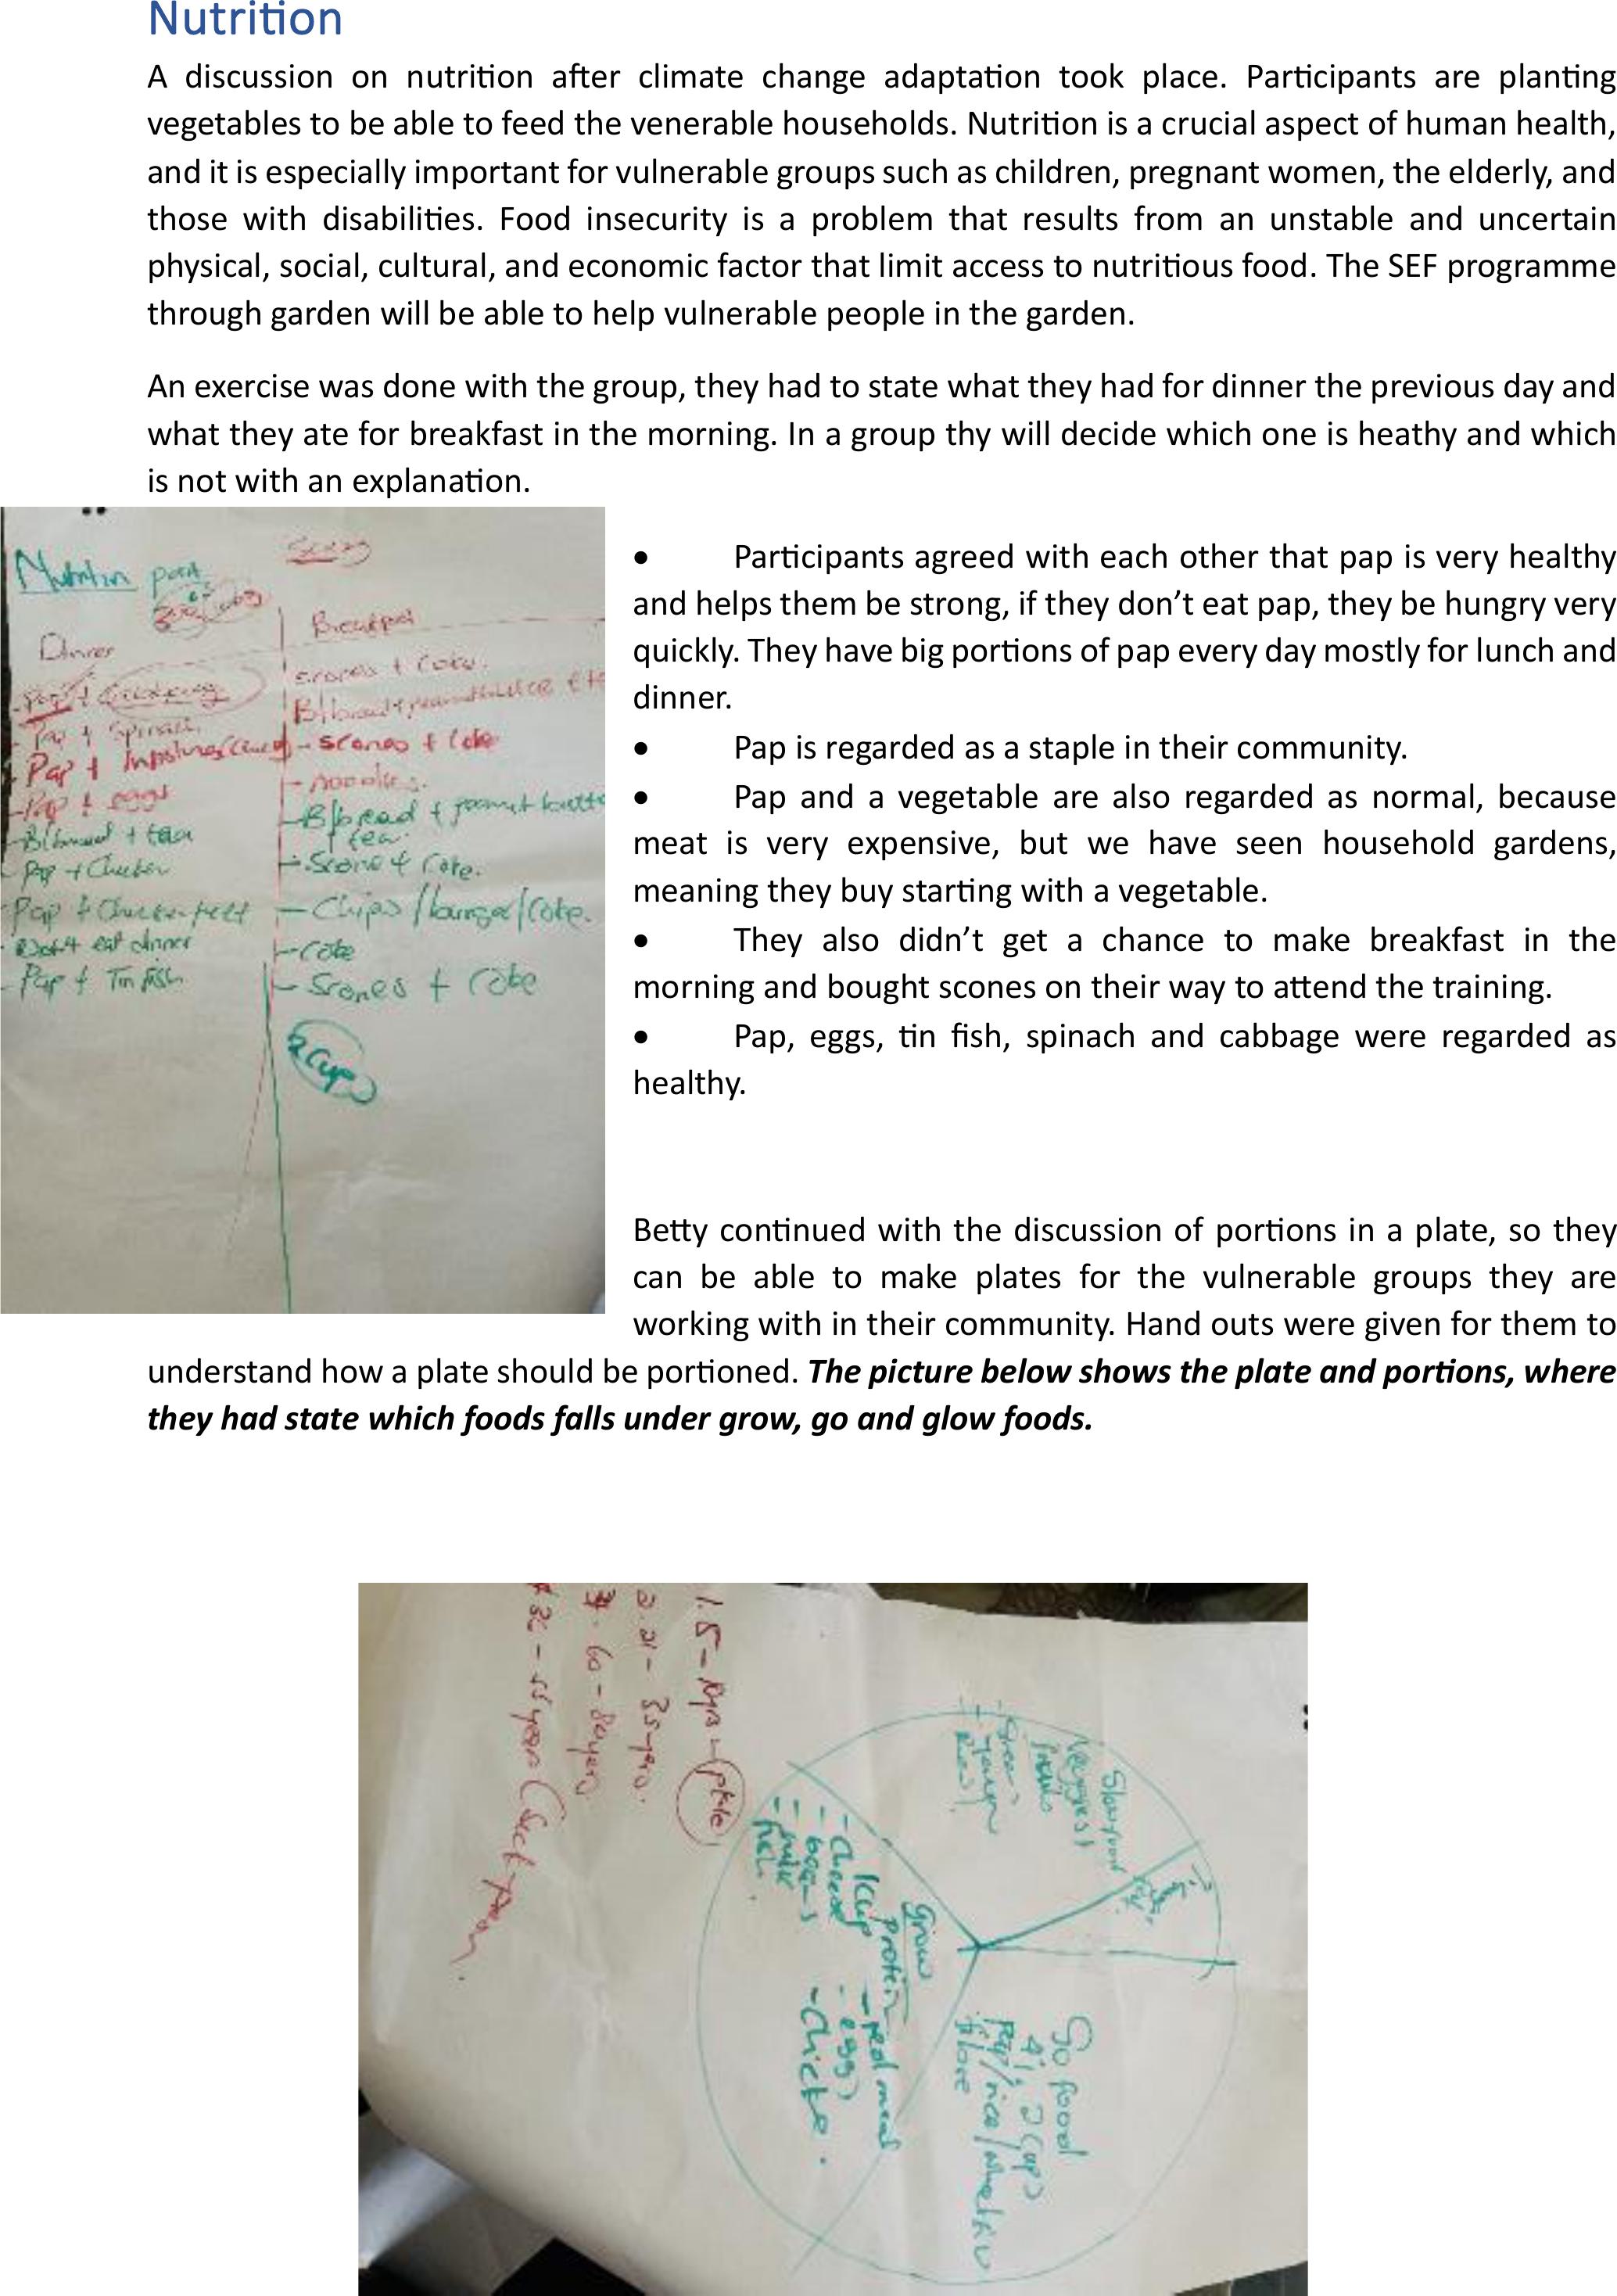 Nutrition
A discussion on nutrition after climate change adaptation took place. Participants are planting
vegetables to be able to feed the venerable households. Nutrition is a crucial aspect of human health,
and it is especially important for vulnerable groups such as children, pregnant women, the elderly, and
those with disabilities. Food insecurity is a problem that results from an unstable and uncertain
physical, social, cultural, and economic factor that limit access to nutritious food. The SEF programme
through garden will be able to help vulnerable people in the garden.
An exercise was done with the group, they had to state what they had for dinner the previous day and
what they ate for breakfast in the morning. In a group thy will decide which one is heathy and which
is not with an explanation.
Dinner
Pap + Spinach
Pap +
Pap + eggs
B/bread + tea
Pap + Chicken
Pap + Chicken feet
eat dinner
Pap + Tin fish
Breakfast
scones + Coke.
- scones + Coke
- Noodles.
- B/bread + peanut butte
tea.
- Scone + Coke.
- Chips / burger / Coke.
- Coke
- Scones + Coke
2 Cups
• Participants agreed with each other that pap is very healthy
and helps them be strong, if they don’t eat pap, they be hungry very
quickly. They have big portions of pap every day mostly for lunch and
dinner.
• Pap is regarded as a staple in their community.
• Pap and a vegetable are also regarded as normal, because
meat is very expensive, but we have seen household gardens,
meaning they buy starting with a vegetable.
• They also didn’t get a chance to make breakfast in the
morning and bought scones on their way to attend the training.
• Pap, eggs, tin fish, spinach and cabbage were regarded as
healthy.
Betty continued with the discussion of portions in a plate, so they
can be able to make plates for the vulnerable groups they are
working with in their community. Hand outs were given for them to
understand how a plate should be portioned. The picture below shows the plate and portions, where
they had state which foods falls under grow, go and glow foods.
Go food
Pap/rice/
grow
protein
1cup
- red meat
- egg
- Chicke
- cheese
- beans
- milk
- fish.
Veggies +
- Green
- Red